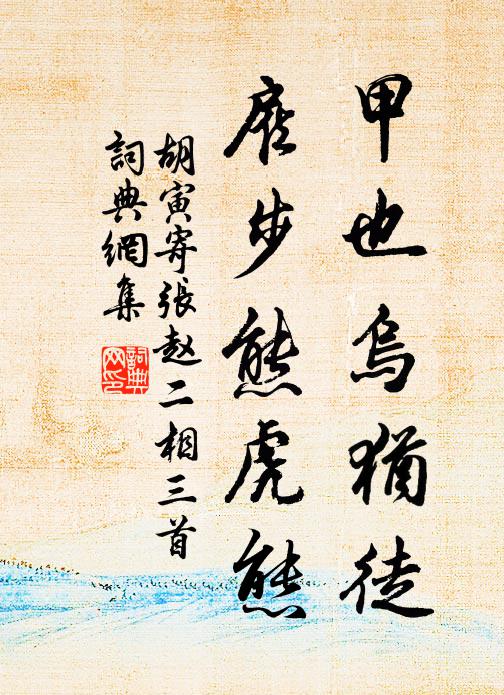 甲也烏猶徒
步熊虎熊
胡寅寄張赵二相三首
詞典網集
詞典网印